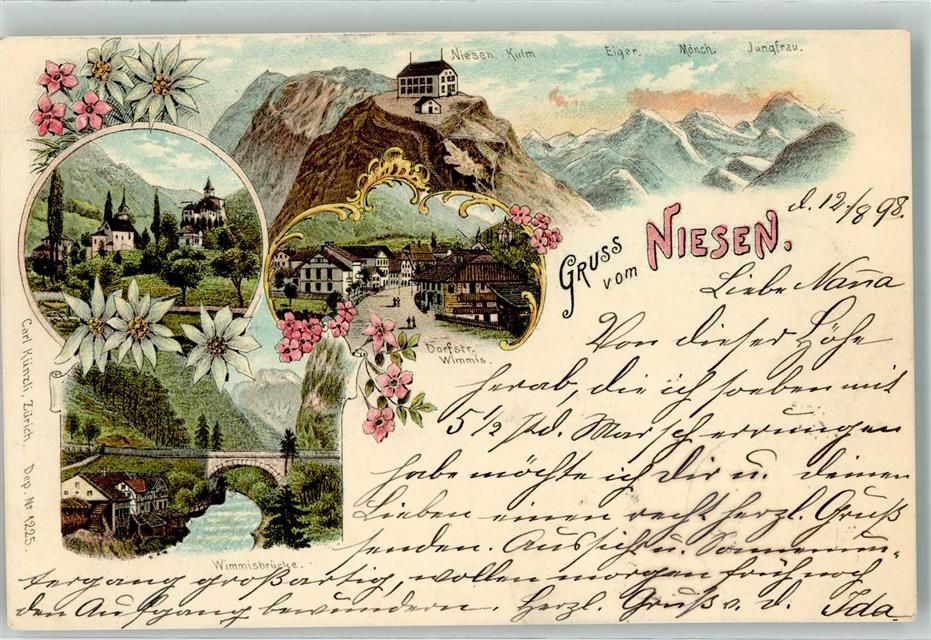 Niesen Kulm
Eiger. Mönch. Jungfrau.
d. 12./8 98.
Gruss vom Niesen.
Liebe Nana
Von dieser Höhe
herab, die ich soeben mit
5 1/2 Std. Marsch errungen
habe möchte ich Dir u. deinen
Lieben einen recht herzl. Gruß
senden. Aussicht u. Sonnenun-
tergang großartig, wollen morgen früh noch
den Aufgang bewundern. Herzl. Gruß v. d. Ida
Dorfstr.
Wimmis.
Wimmisbrücke.
Carl Künzli, Zürich. Dep. No 1225.